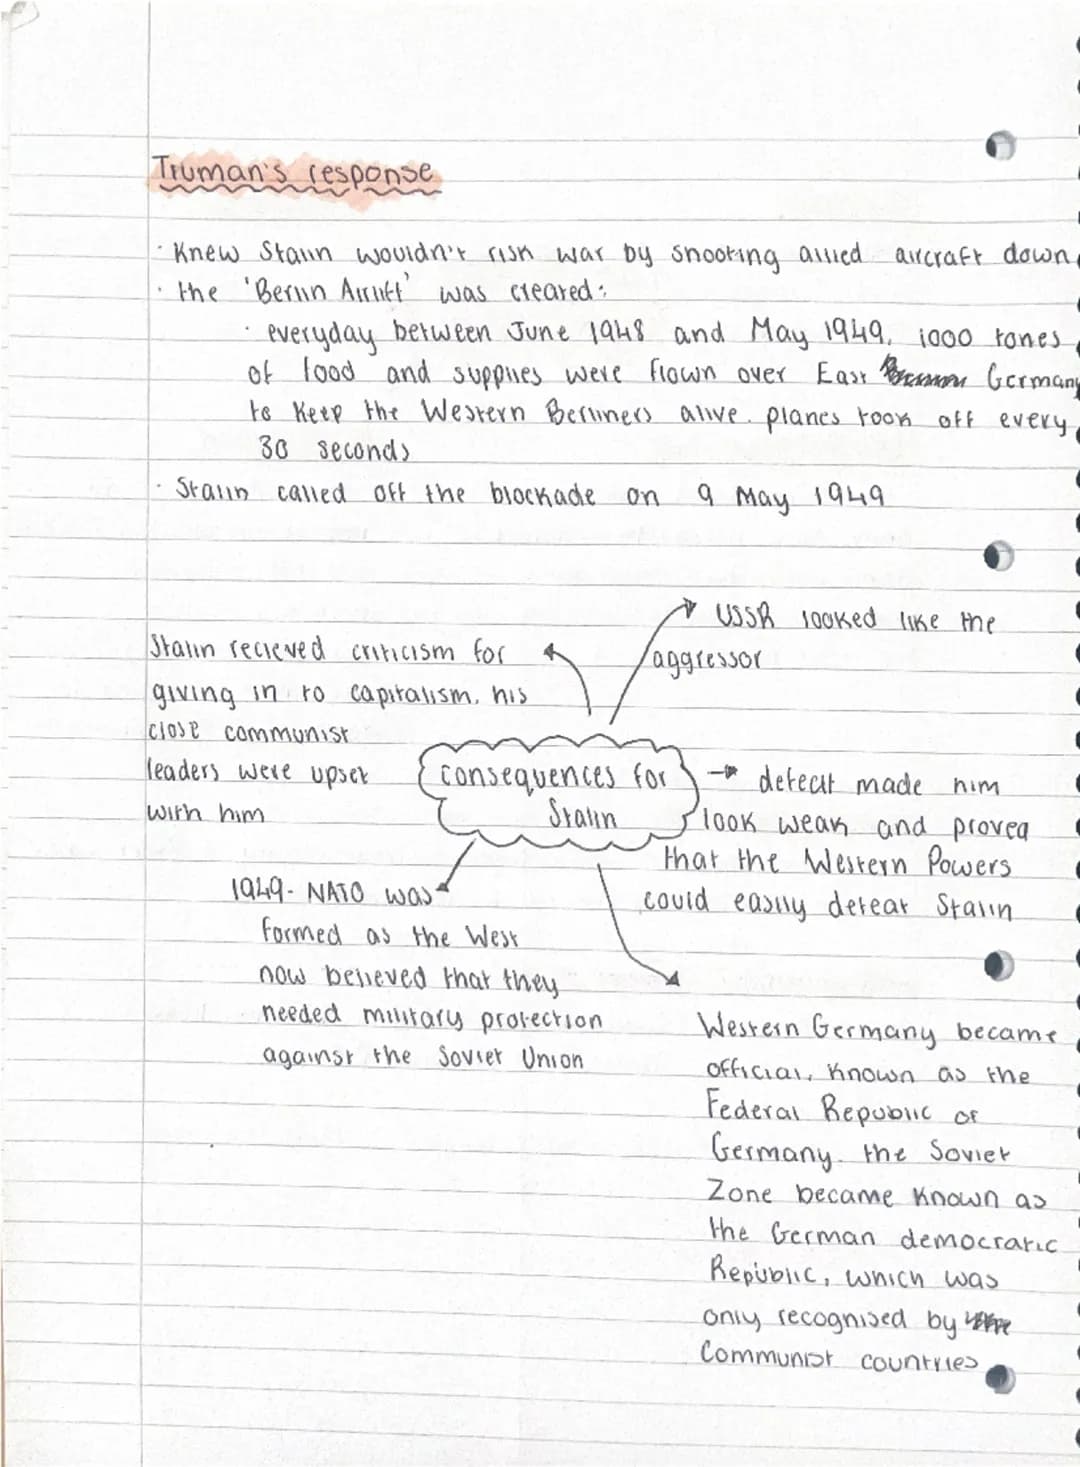 Truman's response
· Knew Stalin wouldn't risk war by shooting allied aircraft down
· the 'Berlin Airlift' was created:
· everyday between June 1948 and May 1949, 1000 tones
of food and supplies were flown over East Germany
to keep the Western Berliners alive. planes took off every
30 seconds
· Stalin called off the blockade on 9 May 1949
USSR looked like the
aggressor
Stalin recieved criticism for
giving in to capitalism, his
close communist
leaders were upset
with him
consequences for
Stalin
defeat made him
look weak and proved
that the Western Powers
could easily defeat Stalin
1949- NATO was
formed as the West
now believed that they
needed military protection
against the Soviet Union
Western Germany became
official, known as the
Federal Republic of
Germany. the Soviet
Zone became known as
the German democratic
Republic, which was
only recognised by
Communist countries